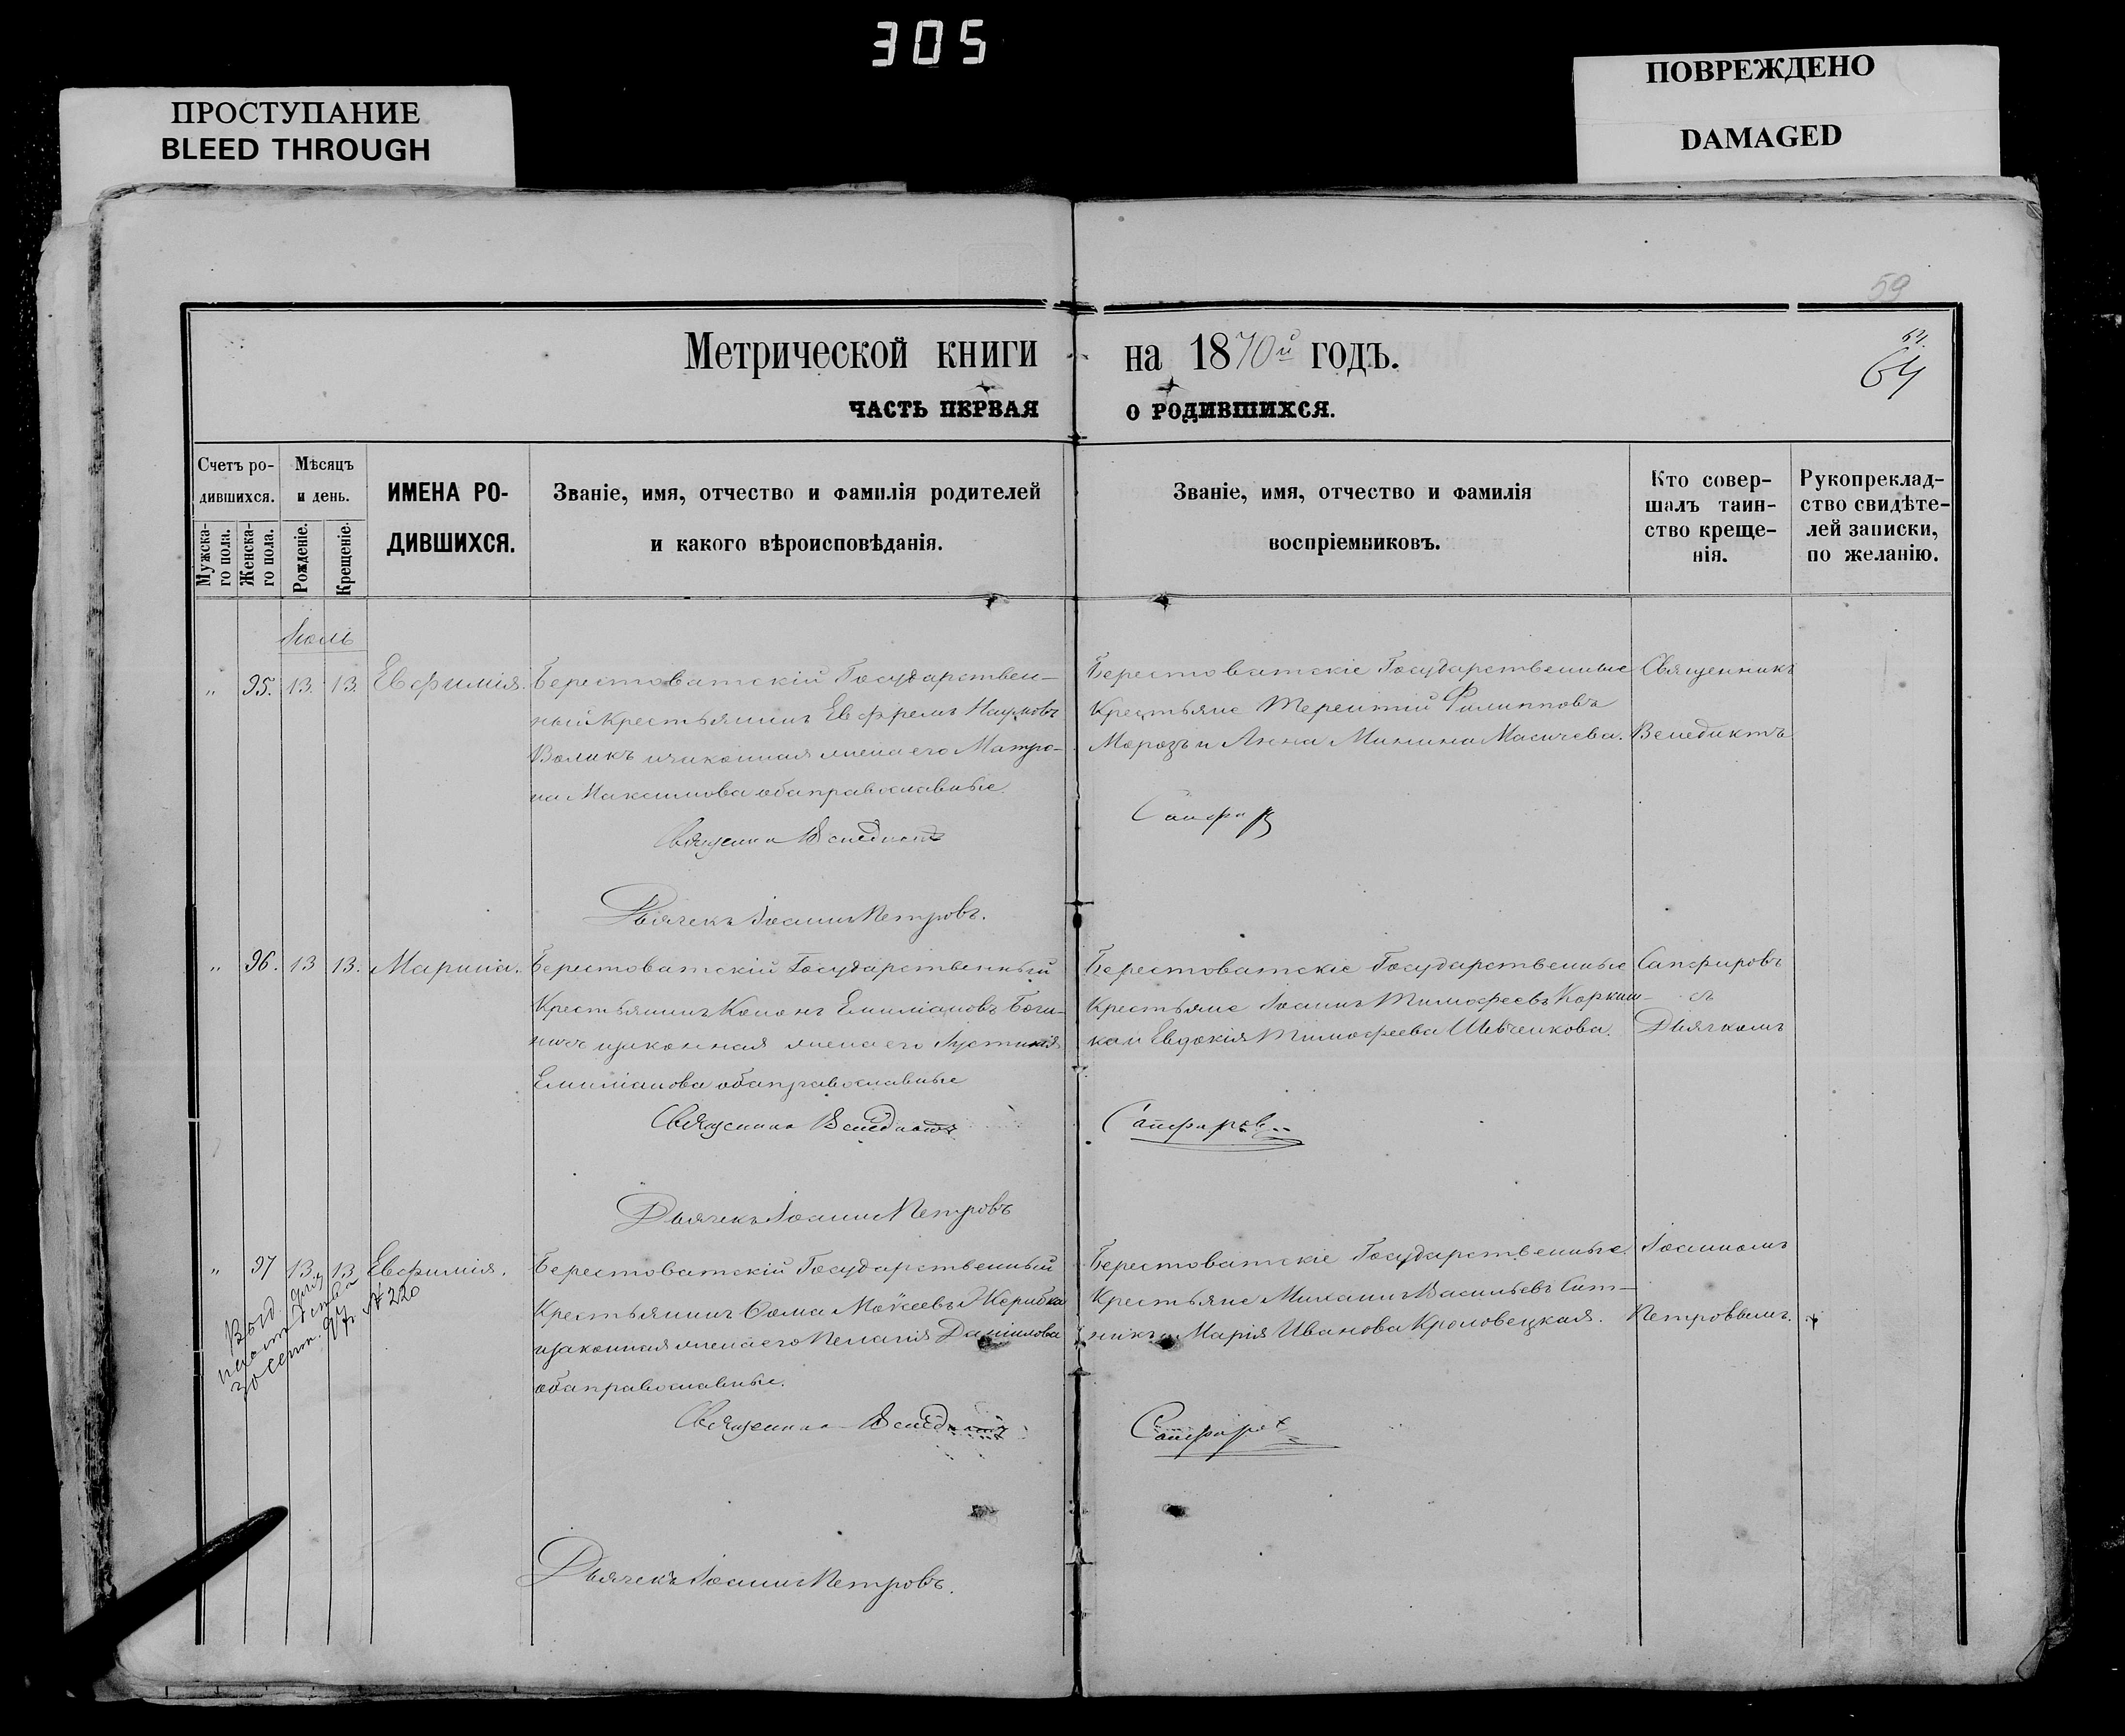 305
ПРОСТУПАНИЕ
BLEED THROUGH
ПОВРЕЖДЕНО
DAMAGED
59
64
Метрической книги на 1870й годъ.
ЧАСТЬ ПЕРВАЯ О РОДИВШИХСЯ.
Счетъ ро-
дившихся.
Мужска-
го пола.
Женска-
го пола.
Мѣсяцъ
и день.
Рожденіе.
Крещеніе.
ИМЕНА РО-
ДИВШИХСЯ.
Званіе, имя, отчество и фамилія родителей
и какого вѣроисповѣданія.
Званіе, имя, отчество и фамилія
воспріемниковъ.
Кто совер-
шалъ таин-
ство креще-
нія.
Рукоприклад-
ство свидѣте-
лей записки,
по желанію.
Іюль
„ 95. 13. 13. Евфимія.
Берестоватскій Государствен-
ный Крестьянинъ Евфремъ Наумовъ
Воликъ и законная жена его Матро-
на Максимова оба православные.
Священник Венедиктъ
Дьячекъ Іоаннъ Петровъ.
Берестоватскіе Государственные
Крестьяне Терентій Филипповъ
Морозъ и Анна Минина Масичева.
Сапфир
Священникъ
Венедиктъ
„ 96. 13 13. Марина.
Берестоватскій Государственный
Крестьянинъ Кононъ Емиліановъ
и законная жена его Іустинія
Емиліанова оба православные
Священник Венедиктъ
Дьячекъ Іоаннъ Петровъ
Берестоватскіе Государственные
Крестьяне Іоаннъ Тимофеевъ
Евдокія Тимофеева Шевченкова.
Сапфиров
Сапфировъ
съ
Дьячкомъ
„ 97 13. 13. Евфимія.
Берестоватскій Государственный
Крестьянинъ Ѳома Моѵсеевъ Жерибка
и законная жена его Пелагія Даніилова
оба православные.
Священник Венедиктъ
Дьячекъ Іоаннъ Петровъ.
Берестоватскіе Государственные
Крестьяне Михаилъ Васильевъ Сит-
никъ и Марія Иванова Кроловецкая.
Сапфиров
Іоанномъ
Петровымъ.
30 сент. № 220